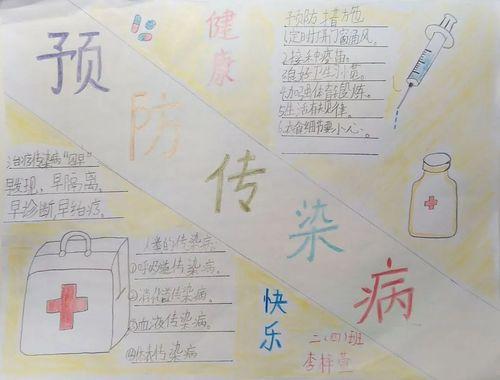 预防传染病
健康
预防措施方法
1.定时开门窗通风。
2.接种疫苗。
3.良好卫生习惯。
4.加强体育锻炼。
5.生活有规律。
小心。
治疗传染病"四早"
早发现,早隔离,
早诊断,早治疗。
人类的传染病:
①呼吸道传染病。
②消化道传染病。
③血液传染病。
④体表传染病
快乐
二(四)班
李梓萱